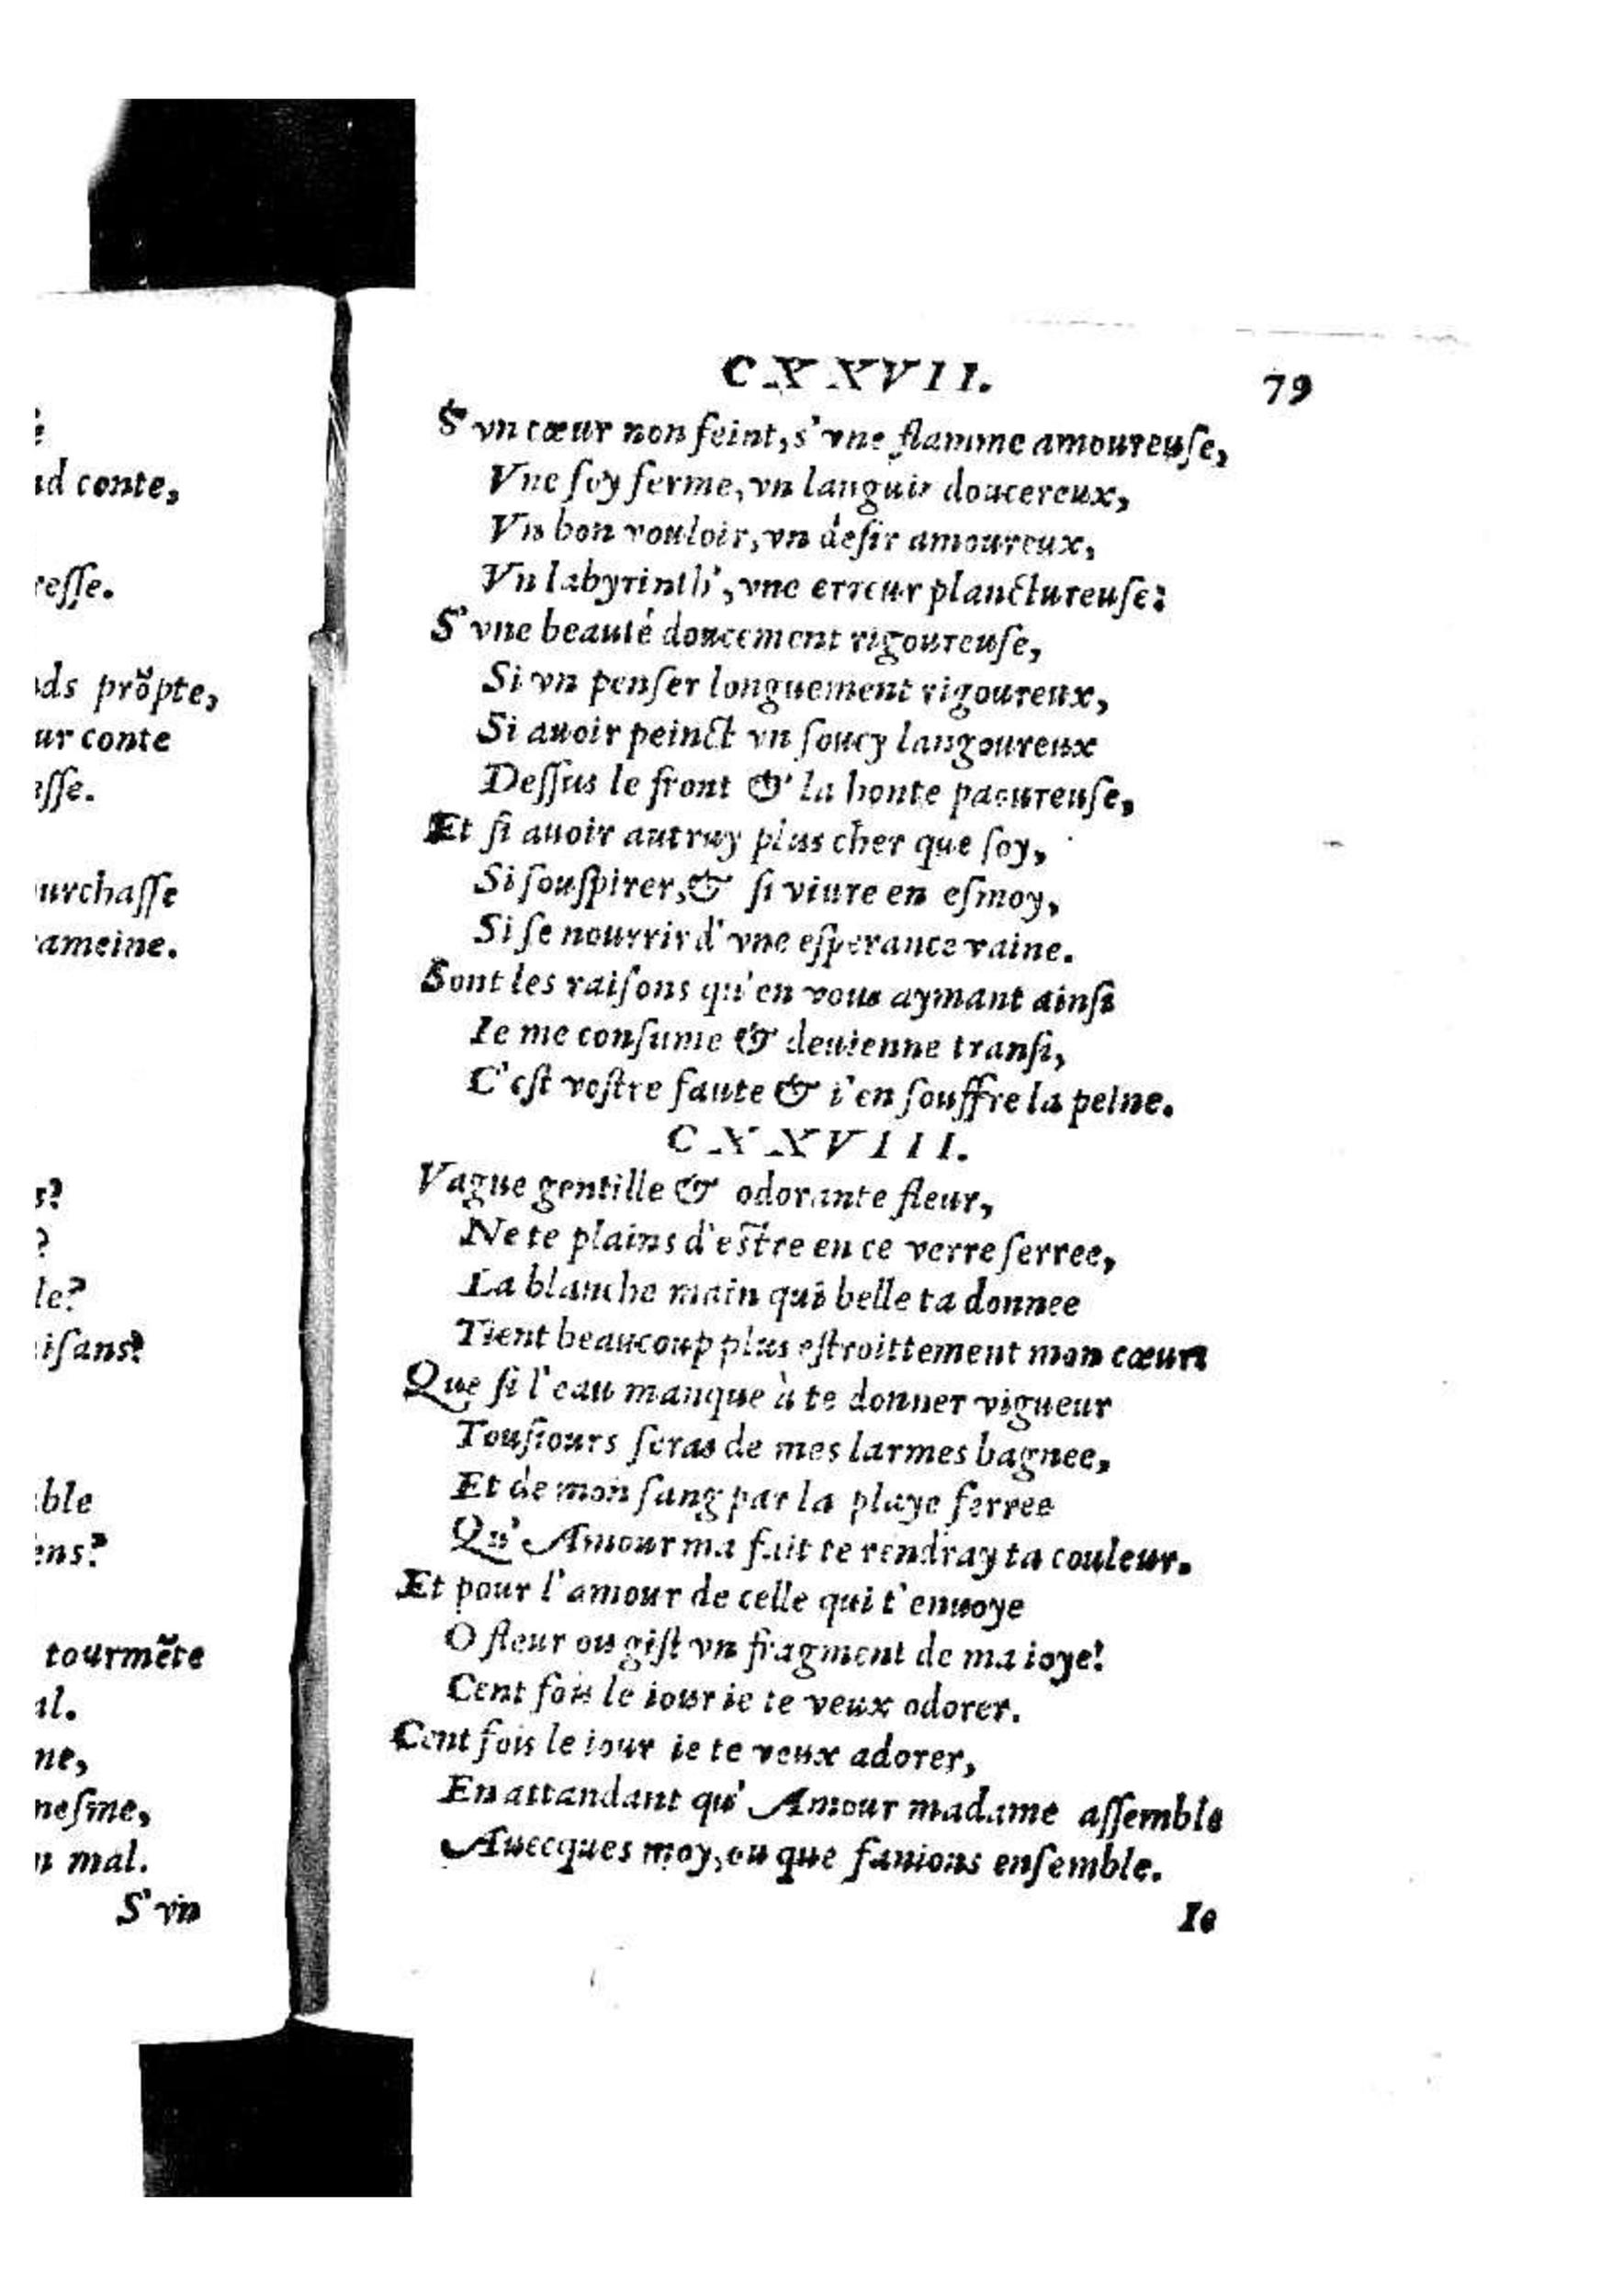 é
nd conte,
resse.
nds prõpte,
ur conte
esse.
urchasse
rameine.
s?
?
le?
isans?
ble
ens?
tourmẽte
al.
ne,
mesme,
n mal.
S'vn
CXXVII.
79
S'vn cœur non feint, s'vne flamme amoureuſe,
Vne foy ferme, vn languir doucereux,
Vn bon vouloir, vn deſir amoureux,
Vn labyrinth', vne erreur planctureuſe:
S'vne beauté doucement rigoureuſe,
Si vn penſer longuement rigoureux,
Si auoir peinct vn ſoucy langoureux
Deſſus le front & la honte paoureuſe,
Et ſi auoir autruy plus cher que ſoy,
Si ſouſpirer, & ſi viure en eſmoy,
Si ſe nourrir d'vne eſperance vaine.
Sont les raiſons qu'en vous aymant ainſi
Ie me conſume & deuienne tranſi,
C'eſt voſtre faute & i'en ſouffre la peine.
CXXVIII.
Vague gentille & odorante fleur,
Ne te plains d'eſtre en ce verre ſerree,
La blanche main qui belle ta donnee
Tient beaucoup plus eſtroittement mon cœur:
Que ſi l'eau manque à te donner vigueur
Touſiours ſeras de mes larmes bagnee,
Et de mon ſang par la playe ferree
Qu'Amour ma fait te rendray ta couleur.
Et pour l'amour de celle qui t'enuoye
O fleur ou giſt vn fragment de ma ioye!
Cent fois le iour ie te veux odorer.
Cent fois le iour ie te veux adorer,
En attandant qu'Amour madame aſſemble
Auecques moy, ou que fanions enſemble.
Ie